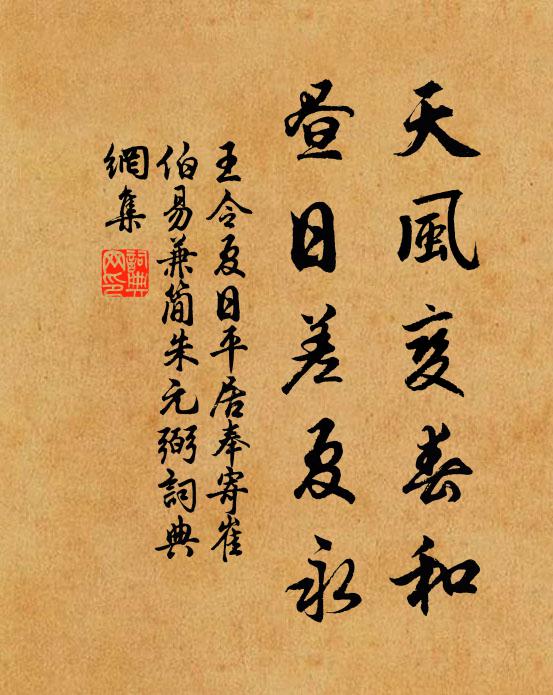 天風変春和
昼日差夏永
王令夏日平居奉寄崔
伯易兼簡朱元弼詞典
網集
詞典
网印